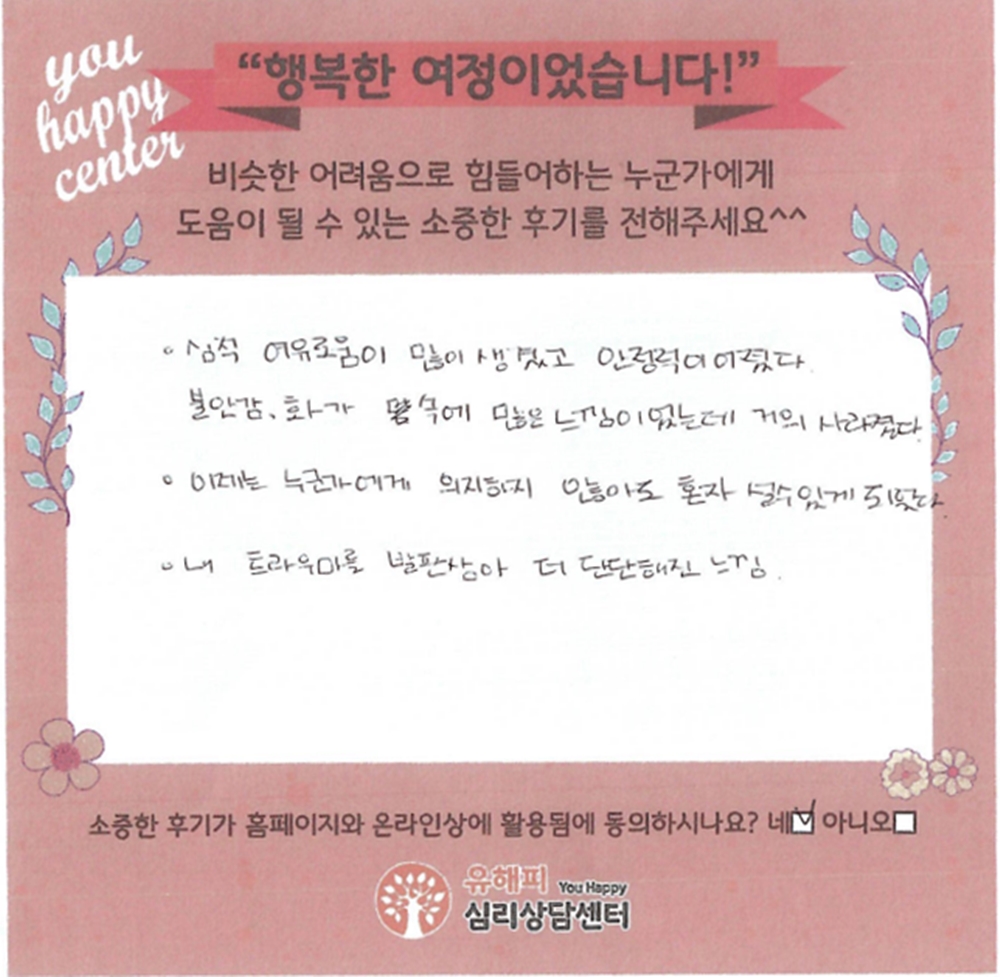 you
happy
center
“행복한 여정이었습니다!”
비슷한 어려움으로 힘들어하는 누군가에게
도움이 될 수 있는 소중한 후기를 전해주세요^^
◦ 심적 여유로움이 많이 생겼고 안정적이어졌다.
불안감, 화가 맘속에 많은 느낌이었는데 거의 사라졌다.
◦ 이제는 누군가에게 의지하지 않아도 혼자 설수있게 되었다.
◦ 내 트라우마를 발판삼아 더 단단해진 느낌.
소중한 후기가 홈페이지와 온라인상에 활용됨에 동의하시나요? 네☑ 아니오☐
유해피 You Happy
심리상담센터